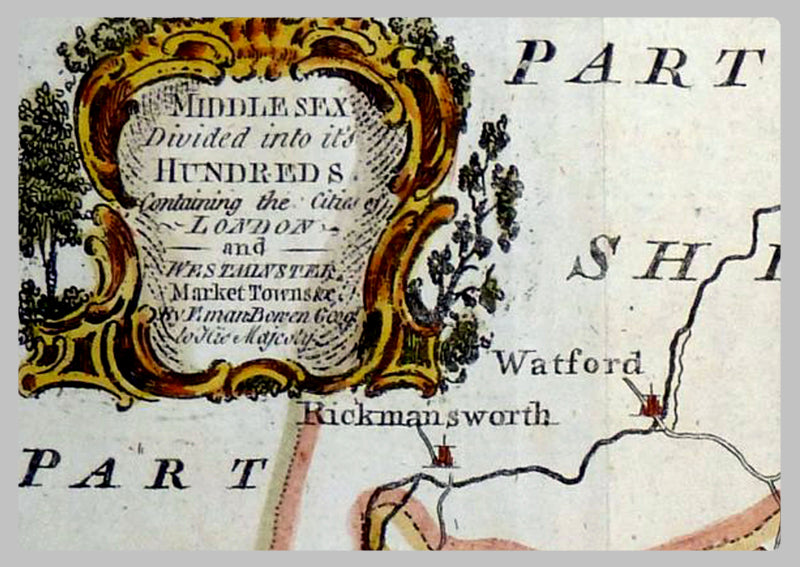 MIDDLESEX
Divided into it's
HUNDREDS.
Containing the Cities of
LONDON
and
WESTMINSTER.
Market Towns &c.
By Eman: Bowen Geogr.
to His Majesty.
PART
SHI
Watford
Rickmansworth
PART